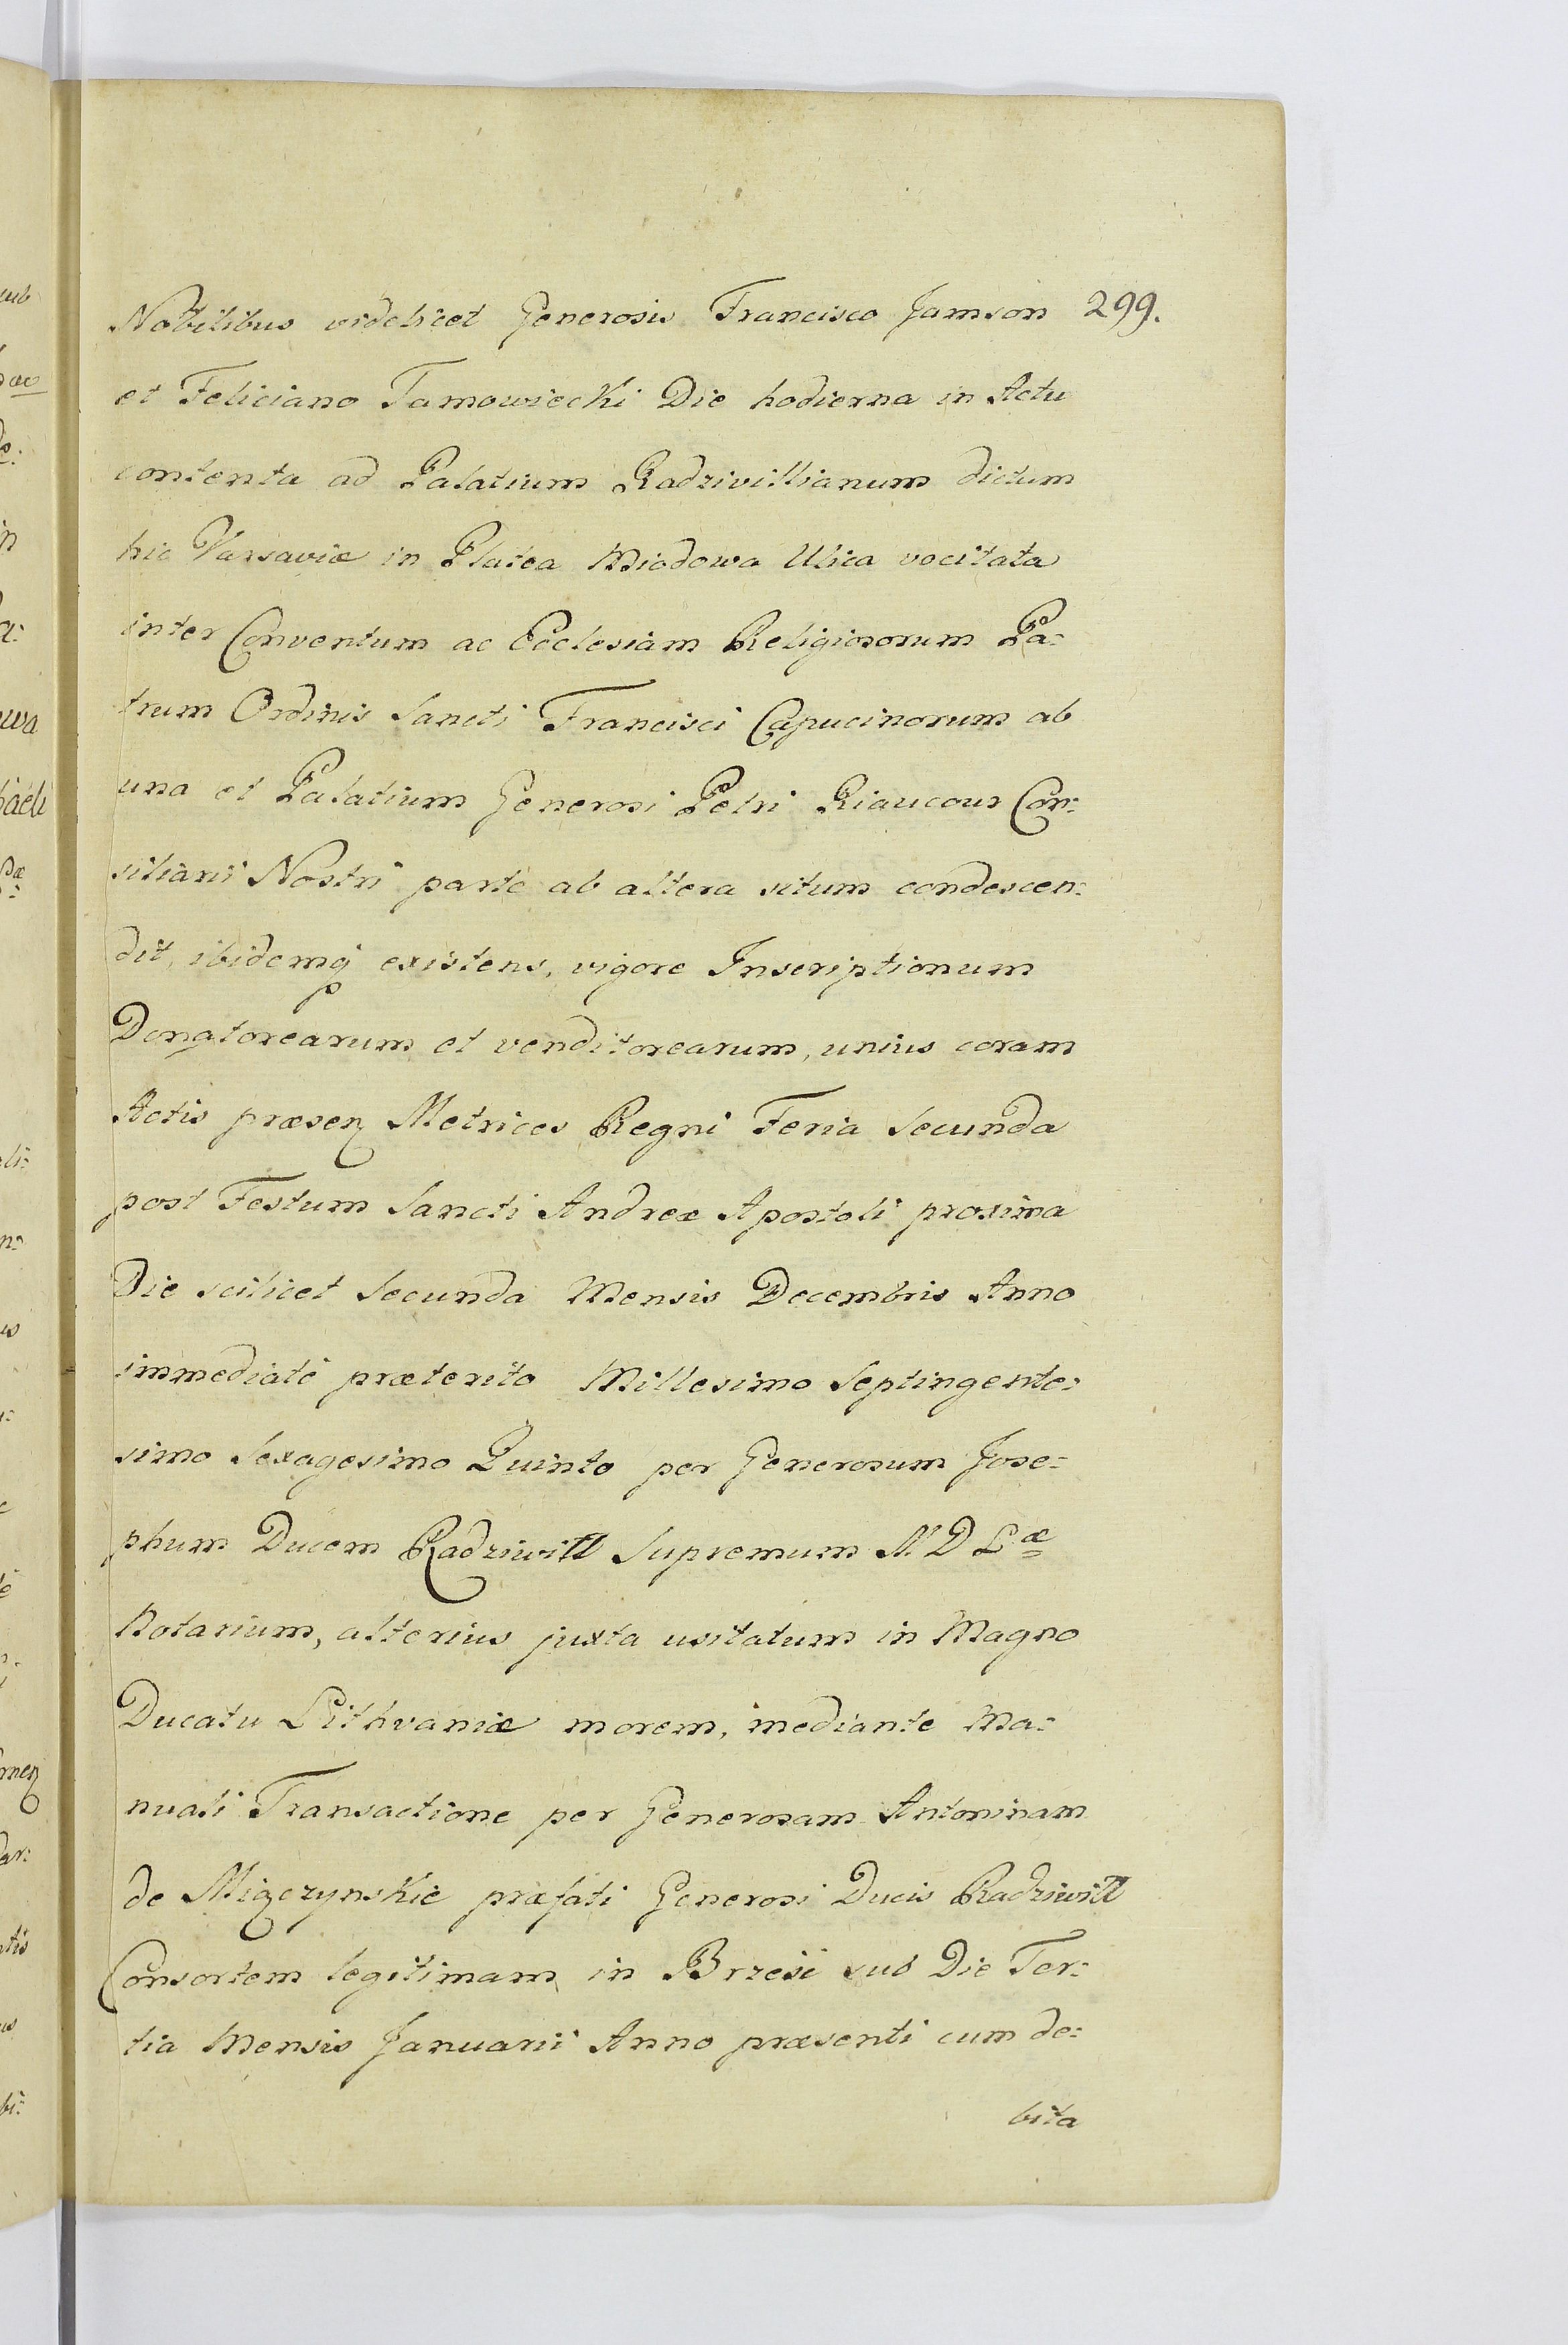 Nobilibus videlicet Generosis Francisco Jamson 299.
et Feliciano Tamowiecki Die hodierna in Actu
contenta ad Palatium Radzivillianum dictum
hic Varsaviæ in Platea Miodowa Ulica vocitata
inter Conventum ac Ecclesiam Religiosorum Pa:
trum Ordinis Sancti Francisci Capucinorum ab
una et Palatium Generosi Petri Riaucour Con:
siliarii Nostri parte ab altera situm condescen:
dit, ibidemq existens, vigore Inscriptionum
Donatorearum et venditorearum, unius coram
Actis præsen Metrices Regni Feria Secunda
post Festum Sancti Andreæ Apostoli proxima
Die scilicet Secunda Mensis Decembris Anno
immediatè præterito Millesimo Septingente:
simo Sexagesimo Quinto per Generosum Jose:
phum Ducem Radziwill Supremum M. D Læ
Notarium, alterius juxta usitatum in Magno
Ducatu Lithvaniæ morem, mediante Ma:
nuali Transactione per Generosam Antoninam
de Miączynskie præfati Generosi Ducis Radziwill
Consortem legitimam in Brzesi sub Die Ter:
tia Mensis Januarii Anno præsenti cum de:
bita